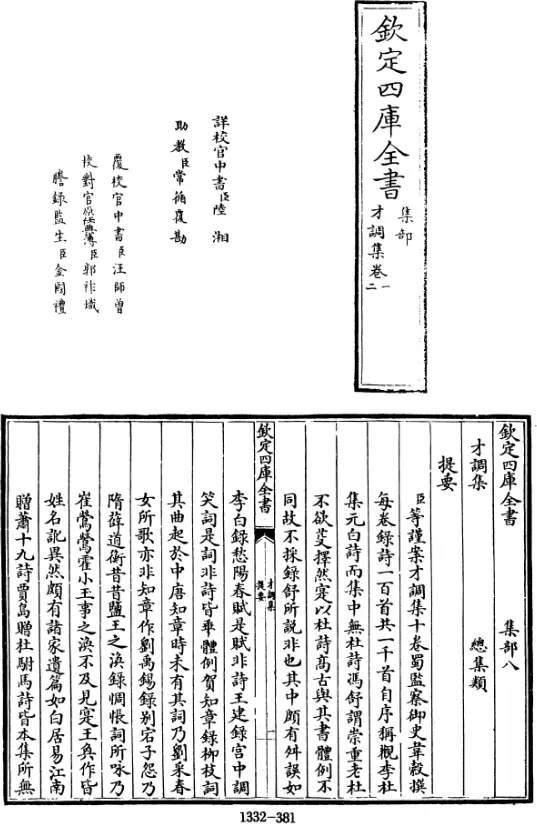 欽定四庫全書
集部
才調集卷一
二
詳校官中書臣陸湘
助教臣常循覆勘
覆校官中書臣汪師曾
校對官原任典簿臣郭祚熾
謄錄監生臣金閎禮
欽定四庫全書 集部八
才調集 總集類
提要
臣等謹案才調集十卷蜀監察御史韋縠撰
每卷錄詩一百首共一千首自序稱觀李杜
集元白詩而集中無杜詩馮舒謂崇重老杜
不欲芟擇然寔以杜詩高古與其書體例不
同故不採錄舒所説非也其中頗有舛誤如
欽定四庫全書
才調集
提要
李白錄愁陽春賦是賦非詩王建錄宮中調
笑詞是詞非詩皆乖體例賀知章錄柳枝詞
其曲起於中唐知章時未有其詞乃劉采春
女所歌亦非知章作劉禹錫錄别宕子怨乃
隋薛道衡昔昔鹽王之渙錄惆悵詞所咏乃
崔鶯鶯霍小王事之渙不及見寔王奐作皆
姓名訛異然頗有諸家遺篇如白居易江南
贈蕭十九詩賈島贈杜駙馬詩皆本集所無
1332-381